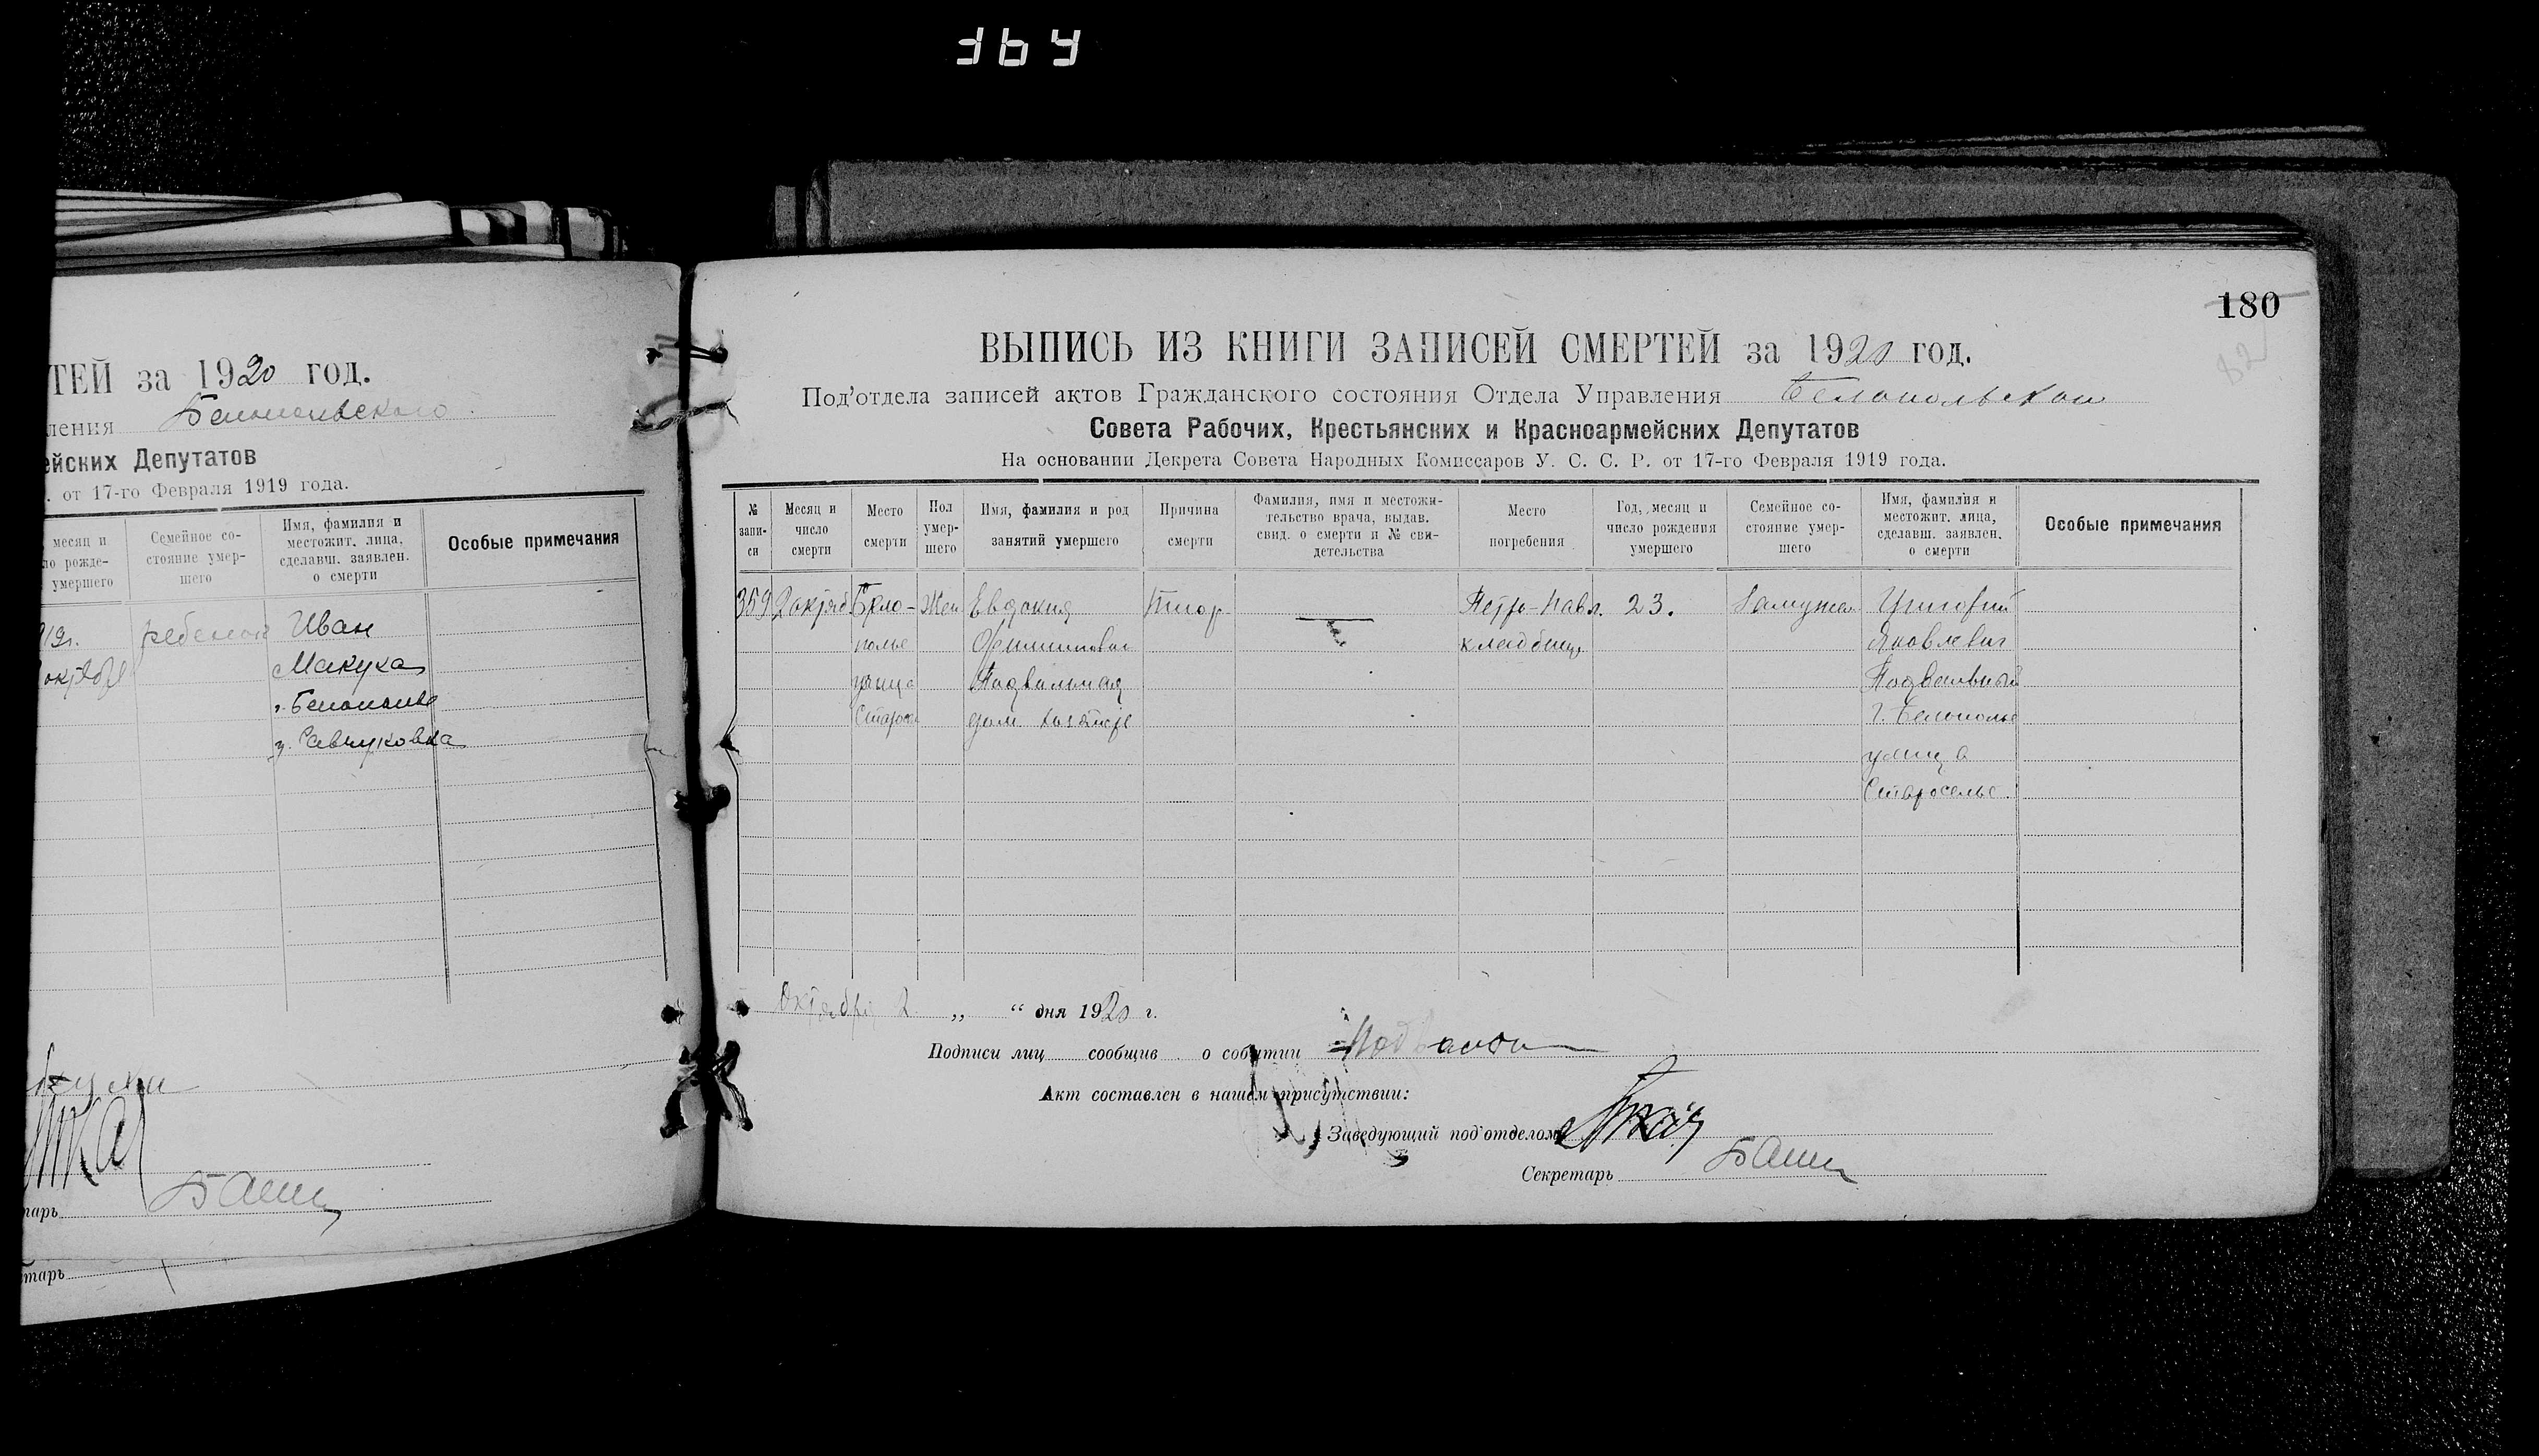 364
ТЕЙ за 1920 год.
ления Белопольского
ейских Депутатов
. от 17-го Февраля 1919 года.
месяц и
ло рожде-
умершего
Семейное со-
стояние умер-
шего
Имя, фамилия и
местожит. лица,
сделавш. заявлен.
о смерти
Особые примечания
ребенок
Иван
Макуха
г. Белополье
у. Савчуковка
тарь
тарь
180
82
ВЫПИСЬ ИЗ КНИГИ ЗАПИСЕЙ СМЕРТЕЙ за 1920 год.
Под'отдела записей актов Гражданского состояния Отдела Управления Белопольского
Совета Рабочих, Крестьянских и Красноармейских Депутатов
На основании Декрета Совета Народных Комиссаров У. С. С. Р. от 17-го Февраля 1919 года.
№
запи-
си
Месяц и
число
смерти
Место
смерти
Пол
умер-
шего
Имя, фамилия и род
занятий умершего
Причина
смерти
Фамилия, имя и местожи-
тельство врача, выдав.
свид. о смерти и № сви-
детельства
Место
погребения
Год, месяц и
число рождения
умершего
Семейное со-
стояние умер-
шего
Имя, фамилия и
местожит. лица,
сделавш. заявлен.
о смерти
Особые примечания
359
2 октяб
Бело-
полье
улица
Старос
Жен
Евдокия
Подвальная
дом.
Петро-Павл.
кладбище
23.
Замужем
Григорий
Яковлевич
Подвальный
г. Белополье
улица
Староселье.
Октября 2 „ “ дня 1920 г.
Подписи лиц сообщив . о событии
Акт составлен в нашем присутствии:
Заведующий под'отделом
Секретарь